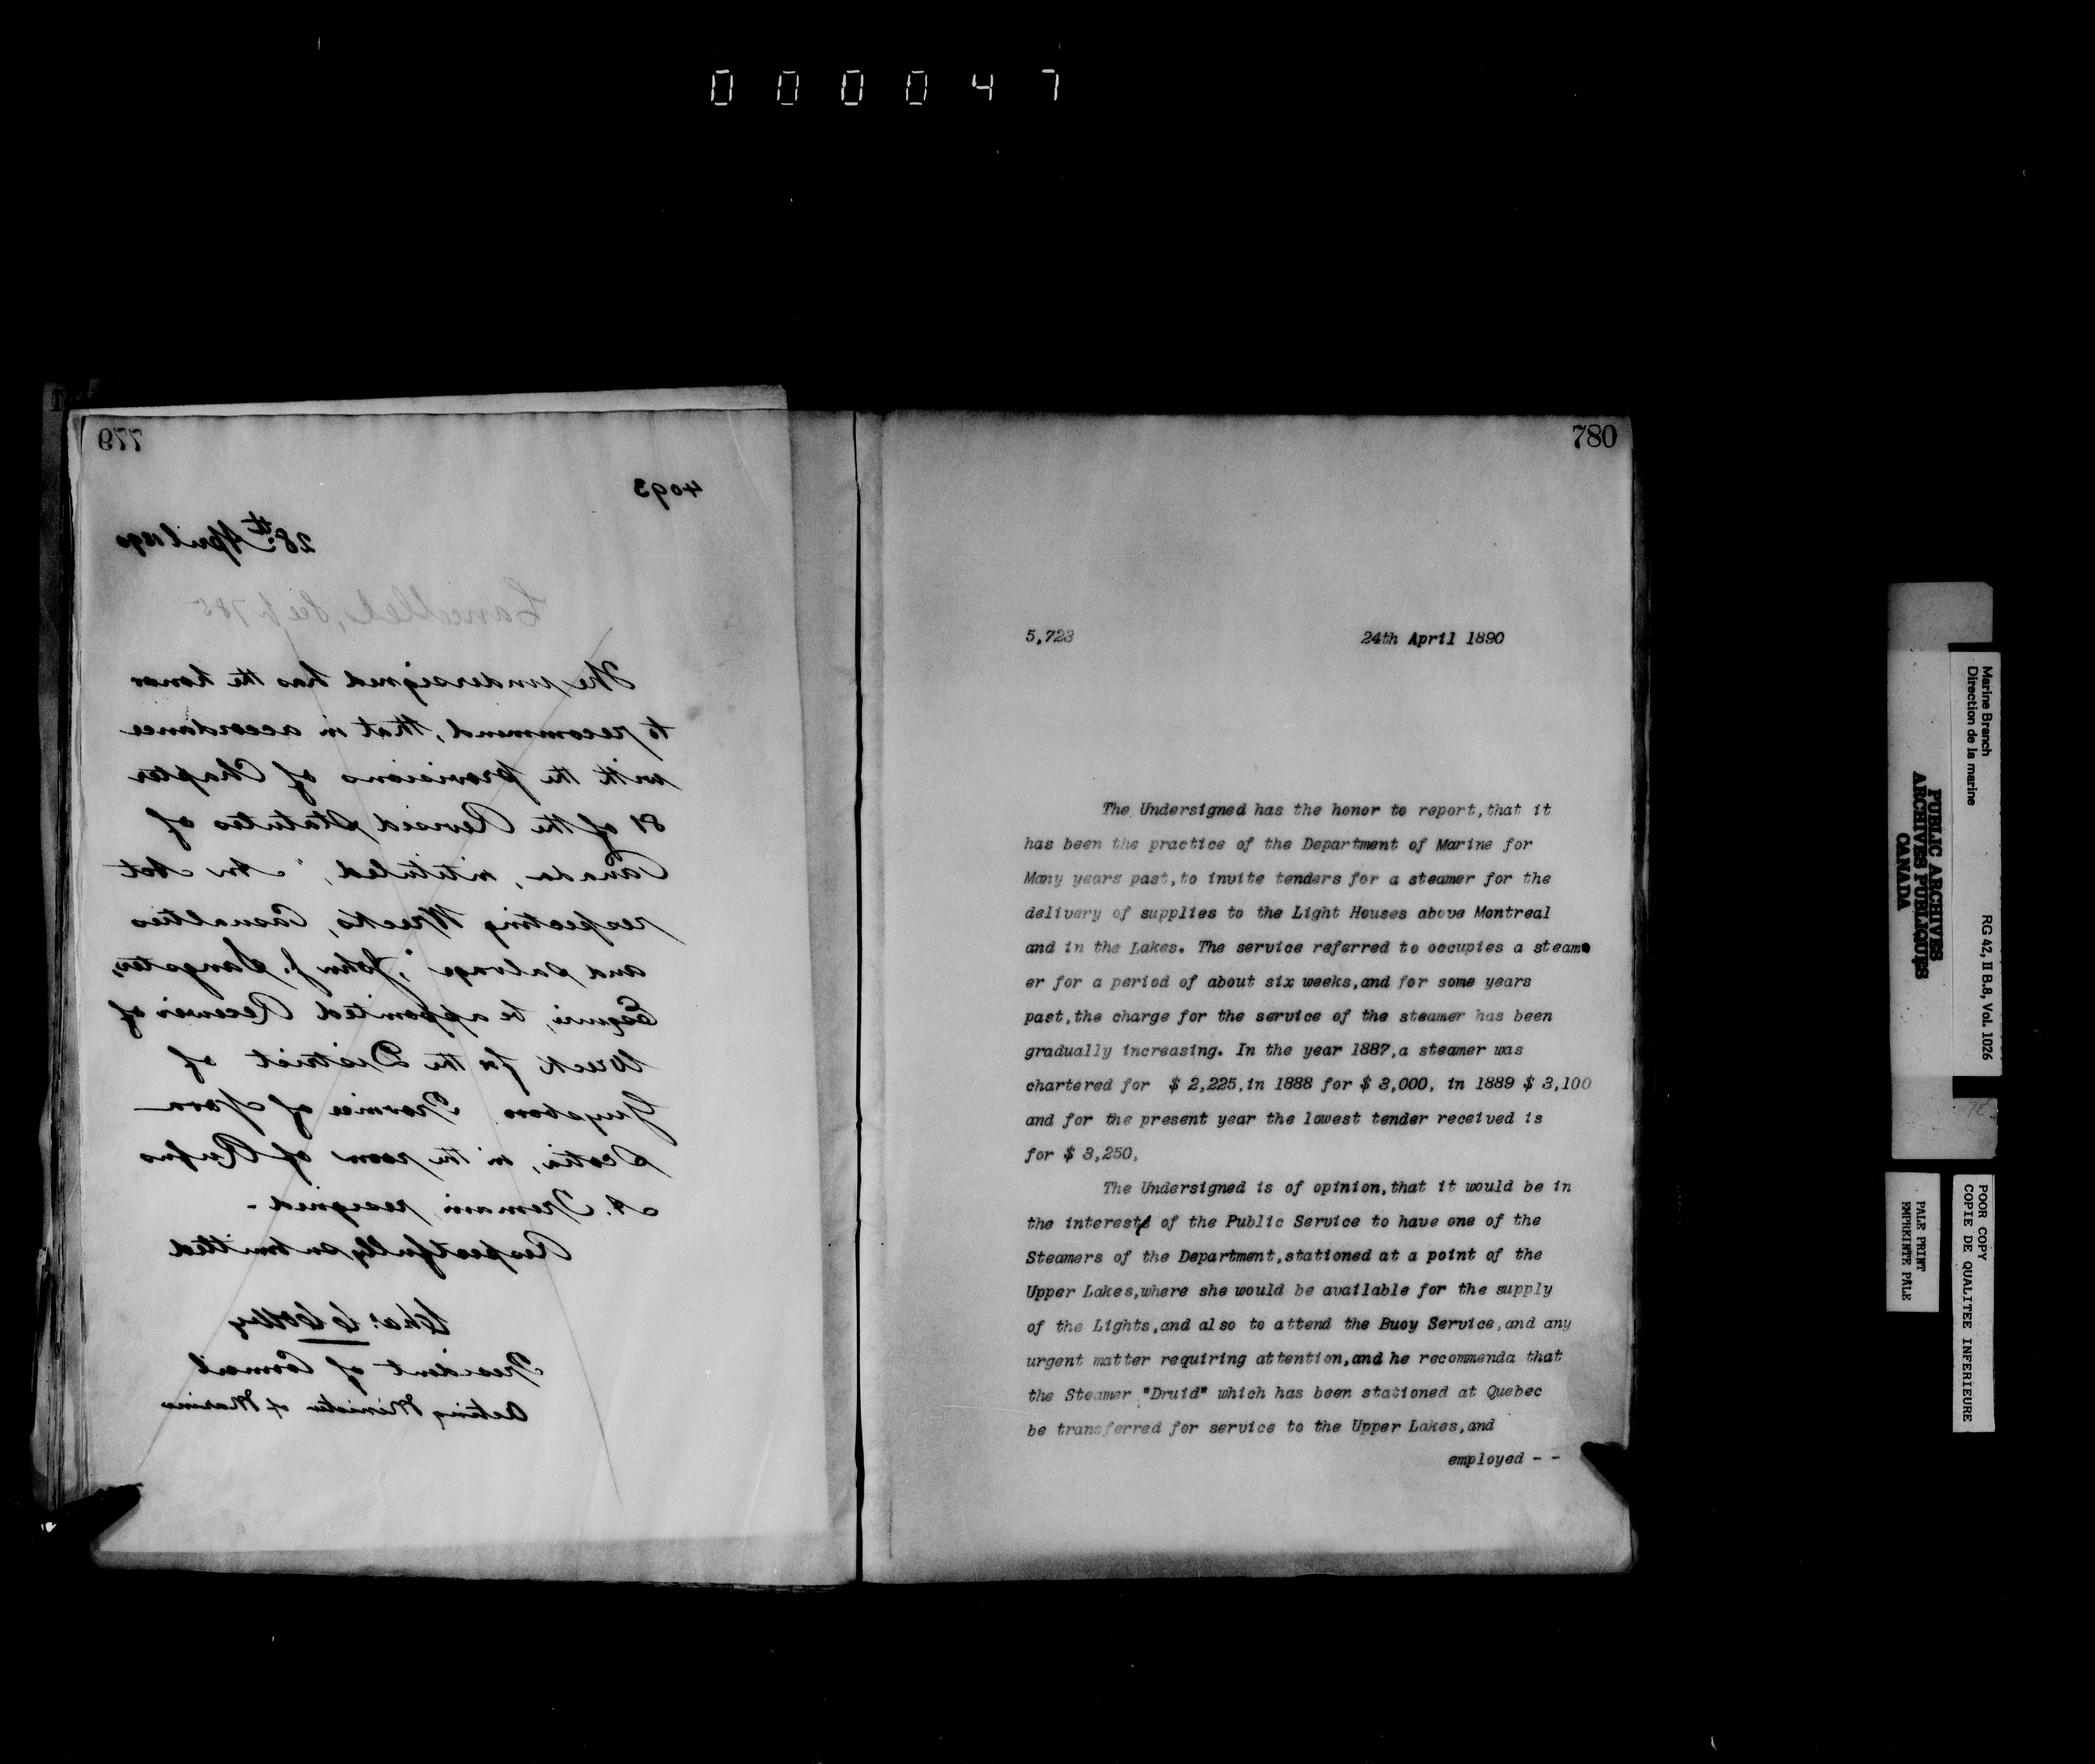 000047
779
4093
28th April 1890
Cancelled, See p 785
The undersigned has the honor
to recommend, that in accordance
with the provisions of Chapter
81 of the Revised Statutes of
Canada, intituled, "An Act
respecting Wrecks, Casualties
and Salvage", John J. Sangster,
Esquire, be appointed Receiver of
Wreck for the District of
Guysboro Province of Nova
Scotia, in the room of Rufus
A. Tremain, resigned -
Respectfully submitted
Chas. C Colby
President of Council
Acting Minister of Marine
780
5,723 24th April 1890
The Undersigned has the honor to report,that it
has been the practice of the Department of Marine for
Many years past,to invite tenders for a steamer for the
delivery of supplies to the Light Houses above Montreal
and in the Lakes. The service referred to occupies a steam-
er for a period of about six weeks,and for some years
past,the charge for the service of the steamer has been
gradually increasing. In the year 1887,a steamer was
chartered for $ 2,225,in 1888 for $ 3,000, in 1889 $ 3,100
and for the present year the lowest tender received is
for $ 3,250.
The Undersigned is of opinion,that it would be in
the interest of the Public Service to have one of the
Steamers of the Department,stationed at a point of the
Upper Lakes,where she would be available for the supply
of the Lights,and also to attend the Buoy Service,and any
urgent matter requiring attention,and he recommenda that
the Steamer "Druid" which has been stationed at Quebec
be transferred for service to the Upper Lakes,and
employed - -
PUBLIC ARCHIVES
ARCHIVES PUBLIQUES
CANADA
Marine Branch
Direction de la marine
RG 42, II B.8, Vol. 1026
PALE PRINT
EMPREINTE PALE
POOR COPY
COPIE DE QUALITEE INFERIEURE